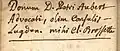 Donum D. Petri Aubert
Advocati, olim Consulis
Lugdun. mihi Cl. Brossette